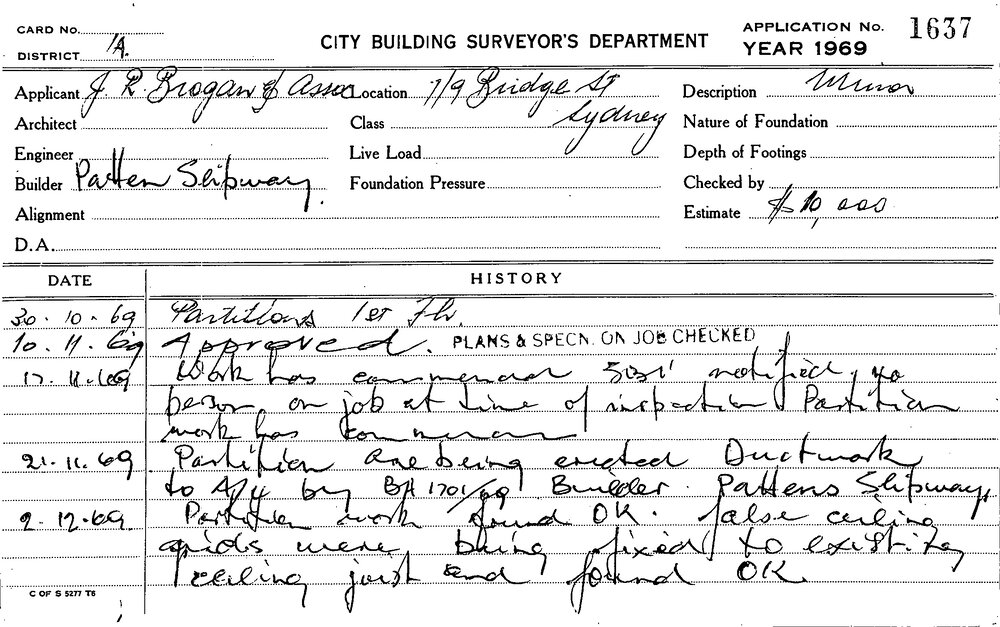 CARD No.
DISTRICT 1A.
CITY BUILDING SURVEYOR'S DEPARTMENT
APPLICATION No. 1637
YEAR 1969
Applicant J. R. Brogan & Assoc Location 7/9 Bridge St Description Minor
Architect Class Sydney Nature of Foundation
Engineer Live Load Depth of Footings
Builder Patten Slipway. Foundation Pressure Checked by
Alignment Estimate $10,000
D.A.
DATE HISTORY
30.10.69 Partitions 1st Flr.
10.11.69 Approved. PLANS & SPECN. ON JOB CHECKED
17.11.69 Work has commenced notified, no
person on job at time of inspection Partition
work has
21.11.69 Partition are being erected Ductwork
to by BH 1701/69 Builder. Pattens Slipway,
2.12.69. Partition work found OK. false ceiling
grids were being fixed to existing
ceiling joist and found OK.
C OF S 5277 T6